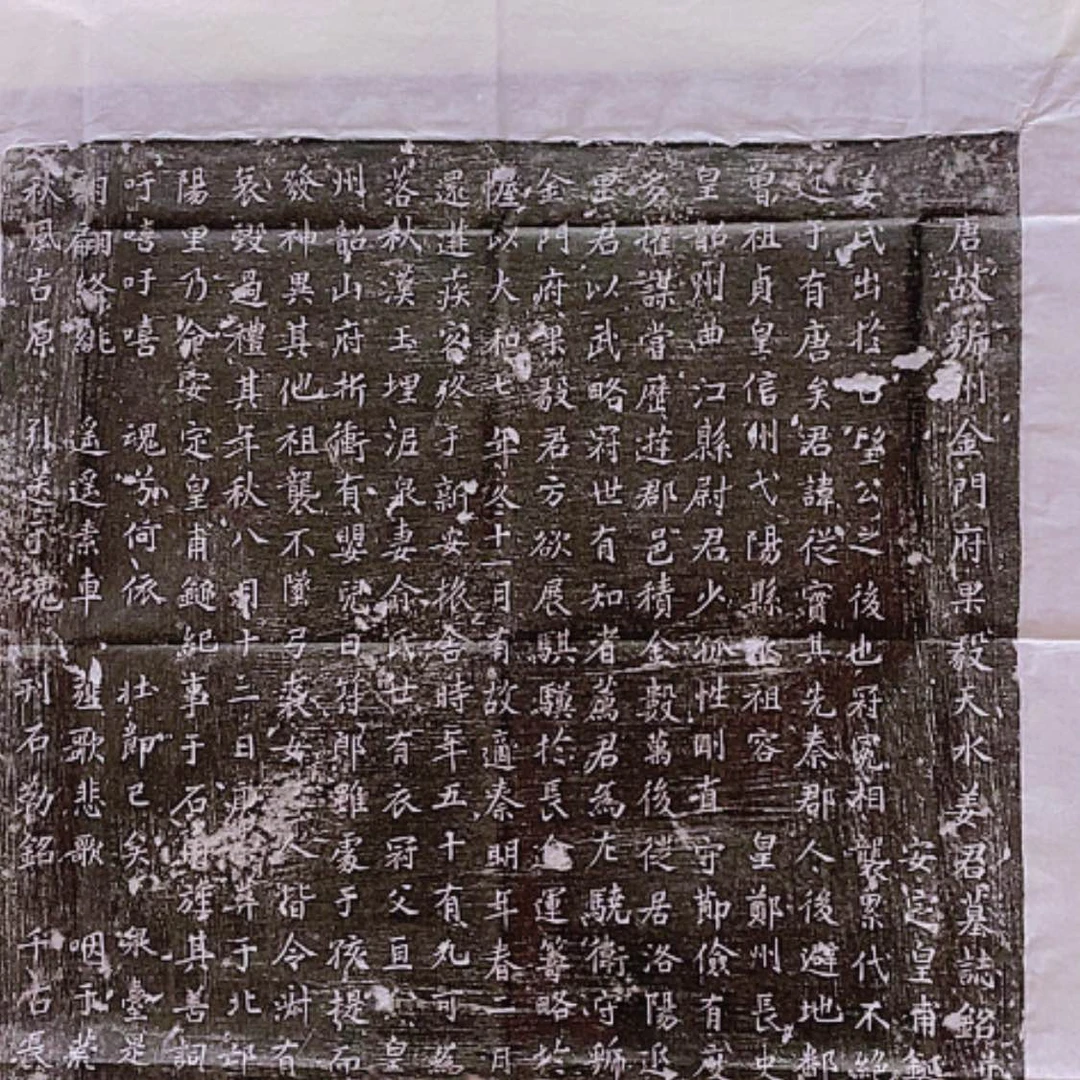 唐故虢州金門府果毅天水姜君墓誌銘并
安定皇甫鉟
姜氏出於呂望公之後也冠冕相襲累代不絕
迄于有唐矣君諱從實其先秦郡人後避地鄱
曾祖貞皇信州弋陽縣丞祖容皇鄭州長史
皇韶州曲江縣尉君少孤性剛直守節儉有度
多權謀嘗歷遊郡邑積金穀萬後從居洛陽
里君以武略冠世有知者薦君為左驍衛守虢
金門府果毅君方欲展騏驥於長途運籌略於
幄以大和七年冬十一月有故適秦明年春二月
還遘疾客終于新安旅舍時年五十有九可為
落秋漢玉埋泥泉妻俞氏世有衣冠父直皇
州韶山府折衝有嬰兒曰符郎雖處于孩提而
發神異其他祖襲不墜弓裘女人皆令淑有
哀毀過禮其年秋八月十二日葬于北邙
陽里乃命安定皇甫鏦紀事于石旌其善詞
吁嘻吁嘻 魂兮何依 壯節已矣 泉臺是
翩 遙遙素車 歌悲歌 咽于
秋風古原 刊石勒銘 千古長